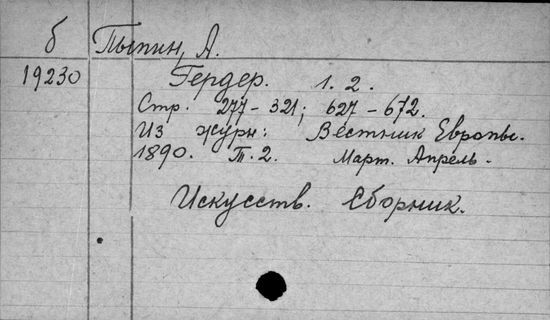 б Пыпин, А.
19230 Гердер. 1. 2.
Стр. 277-321; 627-672.
Из журн: Вестник Европы.
1890. Т. 2. Март. Апрель.
Искусств. Сборник.